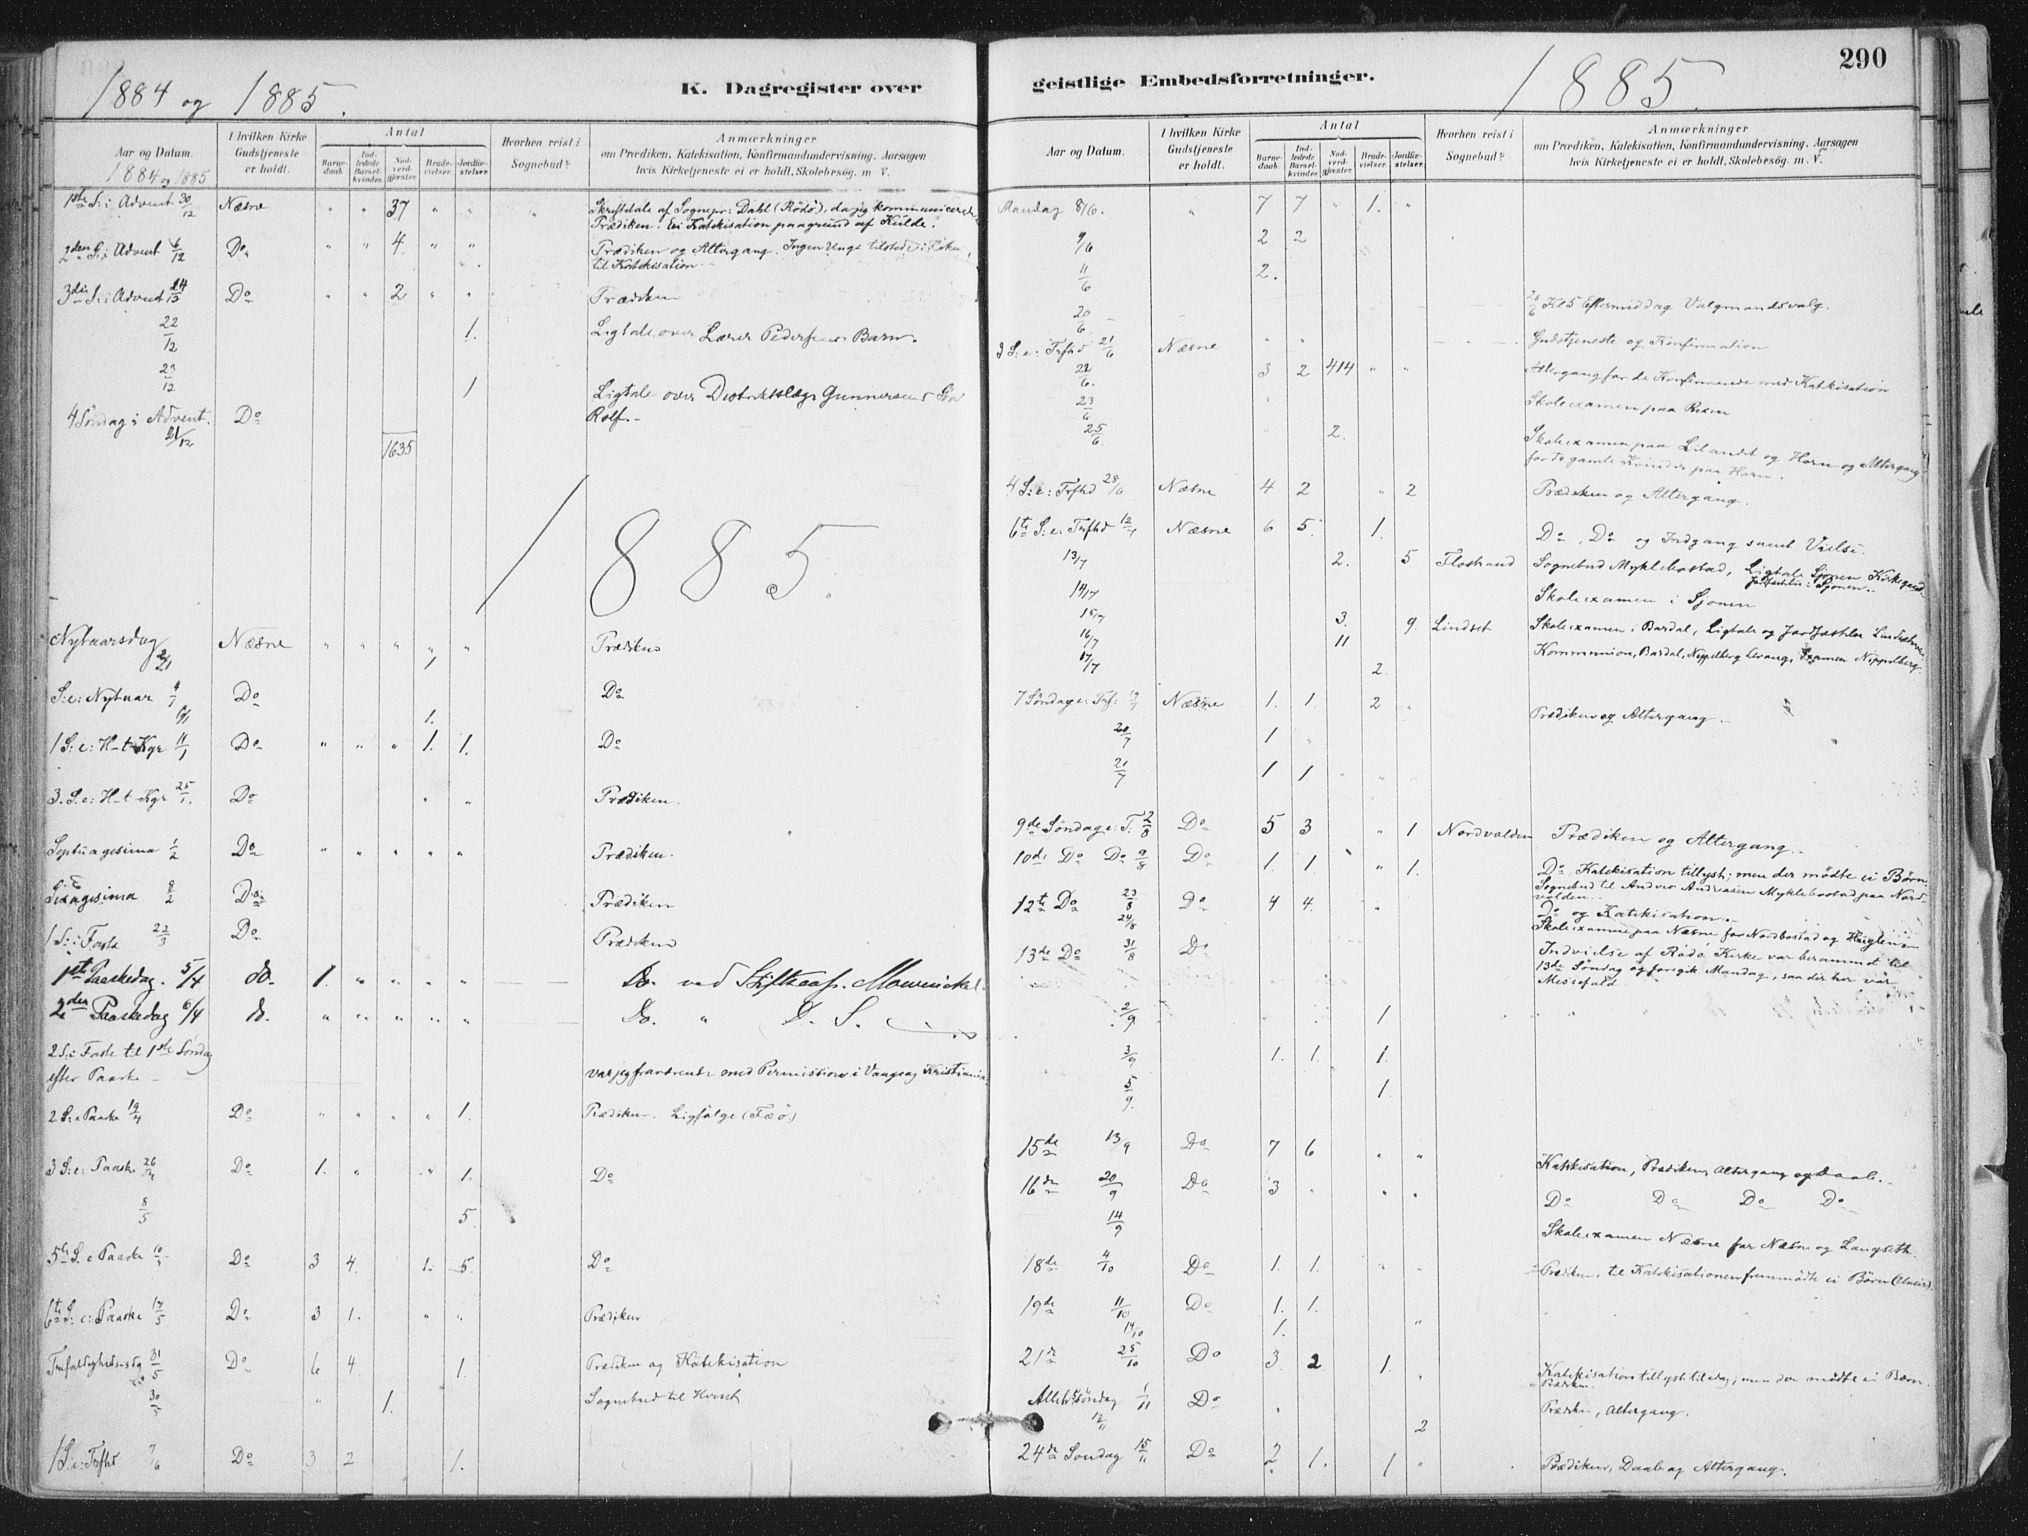 1884 og 1885.
K. Dagregister over
Aar og Datum.
1884 og 1885
I hvilken Kirke Gudstjeneste er holdt.
Antal
Barnedaab.
Indledede Barselkvinder.
Nadverdgjæster.
Brudevielser.
Jordfæstelser.
Hvorhen reist i Sognebud?
Anmærkninger
om Prædiken, Katekisation, Konfirmandundervisning, Aarsagen
hvis Kirketjeneste ei er holdt, Skolebesøg. m. V.
1ste S: i Advent 30/12 Næsne " " 37 " " " Skriftetale af Sognepr: Dahl (Rödö), da jeg kommunicerede
Prædiken. Ei Katekisation paagrund af Kulde.
2den S: i Advent 6/12 Do " " 4 " " Prædiken og Altergang. Ingen Unge tilstede i Kirken
til Katekisation.
3die S: i Advent 14/12 Do " " 2 " " Prædiken
22/12 1. Ligtale over Lærer Pedersens Barn.
23/12 1 Ligtale over Distriktslæge Gunnersens Søn
Rolf.
4 Söndag i Advent. Do
21/12
1635
1885.
Nytaarsdag Næsne " " " " " Prædiken
2/1 1
S: e: Nytaar 4/1 Do Do
6/1 1.
1 S: e: H-t-Kgr 11/1 Do " " " 1. 1. Do
3. S. e: H-t-Kgr 25/1. Do " " Prædiken.
Septuagesima 1/2 Do " " " " " Prædiken.
Sexagesima 8/2 Do Prædiken
1 S: i Faste 22/3 Do Prædiken
1ste Paaskedag. 5/4 do. 1. " " " " Do. ved Stiftscap. Mowinckel
2den Paaskedag 6/4 do. " " " " " Do. " D. S.
2 S: i Faste til 1ste Søndag
efter Paaske var jeg fraværende med Permission i Vang og Kristiania
2 S: e Paaske 19/4 Do " " " " 1. Prædiken. Ligfølge (Fæö)
3 S: e: Paaske 26/4 Do 1. " " 1. Do
8/5 5.
5te S. e Paaske 10/5 Do 3 4. 1. 5. Do
6te S. e: Paaske 17/5 Do 3 1. " " Prædiken
Trefoldighedssdg 31/5 Do 6 4 1. Prædiken og Katekisation
30/5 " 1. Sognebud til
1 S: e: Trfhd 7/6 Do 3 2 1.
geistlige Embedsforretninger.
1885.
290
Aar og Datum.
I hvilken Kirke Gudstjeneste er holdt.
Antal
Barnedaab.
Indledede Barselkvinder.
Nadverdgjæster.
Brudevielser.
Jordfæstelser.
Hvorhen reist i Sognebud?
Anmærkninger
om Prædiken, Katekisation, Konfirmandundervisning, Aarsagen
hvis Kirketjeneste ei er holdt, Skolebesøg. m. V.
Mandag 8/6. " 7 7 " 1. "
9/6 2 2
11/6 2.
20/6. 20/6 Kl 5 Eftermiddag Valgmandsvalg.
3 S: e: Trfhd 21/6 Næsne " " Gudstjeneste og Konfirmation
22/6. 3 2 414 " " Altergang for de Konfirmerede med Katekisation
23/6 Skoleexamen paa
25/6 2. Skoleexamen paa Lilandet og Horn og Altergang
for to gamle Kvinder paa Horn.
4 S: e: Trfhd 28/6 Næsne 4 2 " 2 Prædiken og Altergang.
6te S: e: Trfhd 12/7 Næsne 6 5. 1. Do, Do og Indgang samt Vielse.
13/7 2. 5 Flostrand Sognebud Myklebostad, Ligtale Sjonen Kirkegaard
14/7 Skoleexamen i Sjonen
15/7 3. 9. Lindset Skoleexamen i Bardal, Ligtale og Jordfæstelse
16/7 11 Kommunion, Bardal, Examen
17/7 2.
7 Söndag e: Trf: 19/7 Næsne 1. 1. 2 " Prædiken og Altergang.
20/7 1 "
21/7 1 1 " "
9de Søndag e: T. 2/8 Do 5 3 " 1 Nordvalden Prædiken og Altergang.
10de Do Do 9/8 Do 1. 1. " 1. Do, Katekisation tillyst; men der mødte ei Børn
Sognebud til Anders Andreasen Myklebostad paa Nord-
valden.
12te Do 23/8 Do 4 4. " Do og Katekisation.
24/8 Skoleexamen paa Næsne for Nordbostad og
13de Do 31/8 Do Indvielse af Rödö Kirke var berammet til
13de Søndag og foregik Mandag, saa der her var
Messefald
2/9 1 "
3/9 1. 1. 1.
5/9. 1
15de 13/9 Do 7 6 " " Katekisation, Prædiken, Altergang og Daab.
16de 20/9 Do 3 " " " Do Do Do Do
14/9 Skoleexamen Næsne for Næsne og Langseth
18de 4/10 Do 1. 1. " " Prædiken, til Katekisationen fremmødte ei Børn
19de 11/10 Do 1. 1. "
14/10 1. "
21de 25/10 Do 3 2 1. " Katekisation tillyst til idag; men der mødte ei Børn.
Prædiken.
Allehsöndag 1/11 Do " Prædiken, Altergang.
12/11 2
24de Søndag 15/11 Do 2 1. 1 " Prædiken, Daab og Altergang.